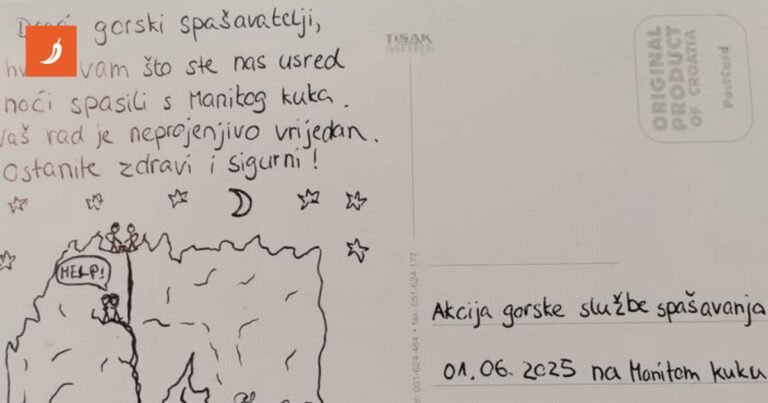 gorski spašavatelji,
vam što ste nas usred
noći spasili s Manitog kuka.
Vaš rad je neprojenjivo vrijedan.
Ostanite zdravi i sigurni!
HELP!
TISAK
ORIGINAL
PRODUCT
OF CROATIA
PostCard
051-624-464 • fax: 051-624-177
Akcija gorske službe spašavanja
01.06.2025 na Manitom kuku